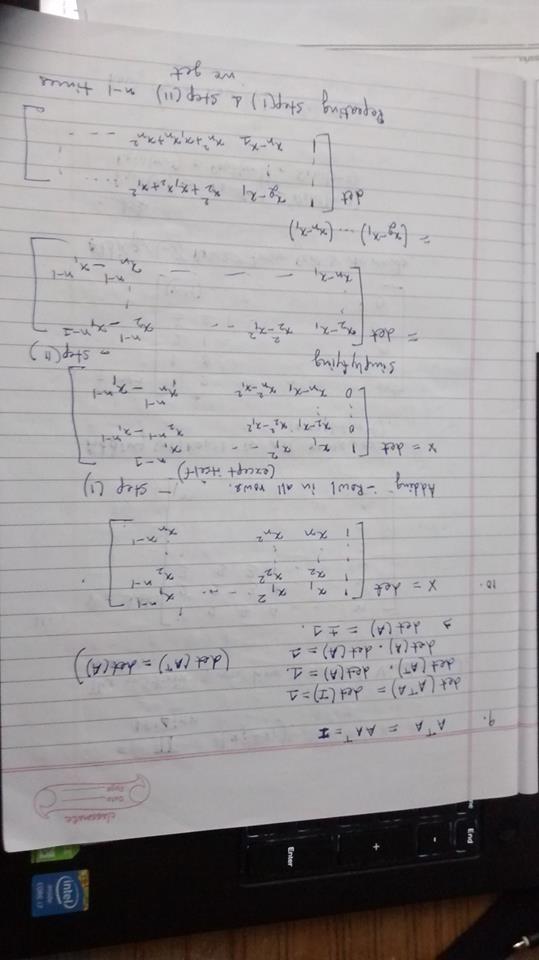 classmate
Date
Page
9. A^T A = A A^T = I
det(A^T A) = det(I) = 1
det(A^T). det(A) = 1.
det(A). det(A) = 1 (det(A^T) = det(A))
⇒ det(A) = ± 1.
10. X = det [ 1 x₁ x₁² ... x₁^(n-1)
1 x₂ x₂² x₂^(n-1)
⋮ ⋮ ⋮ ⋮
1 xₙ xₙ² xₙ^(n-1) ]
Adding -Row1 in all rows. - Step (1)
(except itself)
X = det [ 1 x₁ x₁² - - x₁^(n-1)
0 x₂-x₁ x₂²-x₁² x₂^(n-1) - x₁^(n-1)
⋮
0 xₙ-x₁ xₙ²-x₁² xₙ^(n-1) - x₁^(n-1) ]
Simplyfying - Step (11)
= det [ x₂-x₁ x₂²-x₁² - - x₂^(n-1) - x₁^(n-1)
⋮ ⋮
xₙ-x₁ - - - xₙ^(n-1) - x₁^(n-1) ]
= (x₂-x₁) ... (xₙ-x₁)
det [ 1 x₂-x₁ x₂²+x₂x₁+x₁² ...
⋮ ⋮
1 xₙ-x₁ xₙ²+x₁xₙ+xₙ² - - - ]
Repeating Step (1) & Step (11) n-1 times
we get
intel
inside
CORE i7
Enter
+
-
End